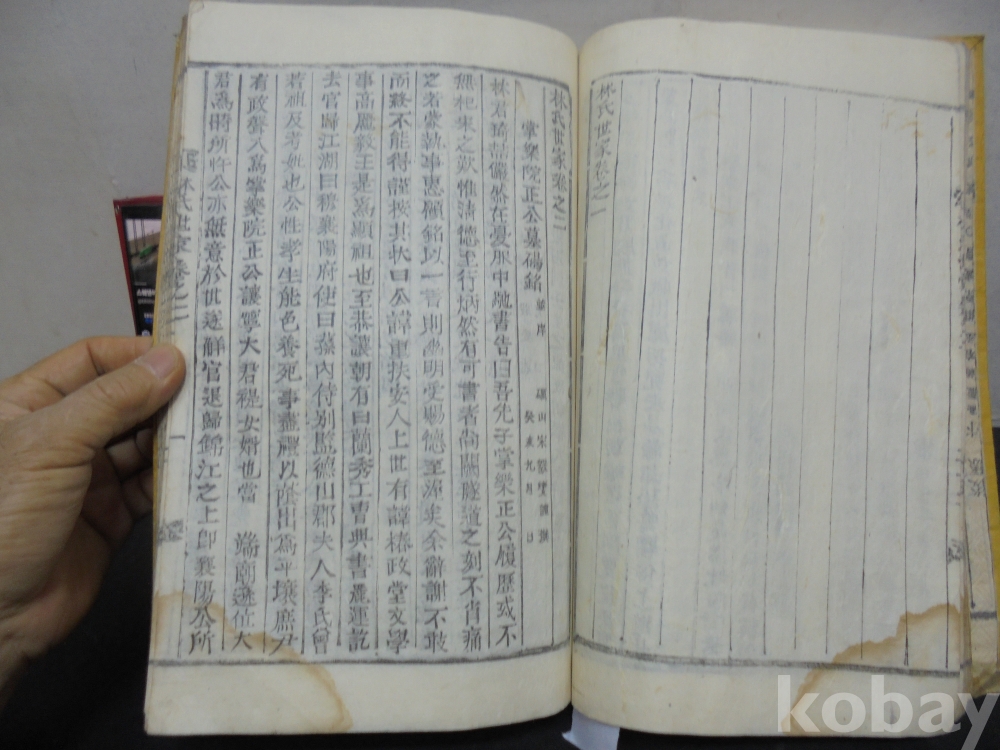 林氏世家卷之一
林氏世家卷之二
掌樂院正公墓碣銘
癸未九月 日
林君
儼然在憂服中馳書告曰吾先子掌樂正公履歷或不
無杞宋之歎惟淸德至行炳然有可書者尙闕隧道之刻不肖痛
之若蒙執事惠顧銘以一言則幽明受賜德至渥矣余辭謝不敢
而終不能得謹按其狀曰公諱重扶安人上世有諱椿政堂文學
事高麗毅王是爲顯祖也至恭讓朝有曰蘭秀工曹典書麗運訖
去官歸江湖曰穆襄陽府使曰蓀內侍別監德山郡夫人李氏曾
若祖及考妣也公性孝生能色養死事盡禮以蔭出爲平壤庶尹
有政聲入爲掌樂院正公讓寧大君禔女婿也當 端廟遜位大
君爲時所忤公亦無意於世遂解官退歸錦江之上卽襄陽公所
林氏世家 卷之二
一
kobay